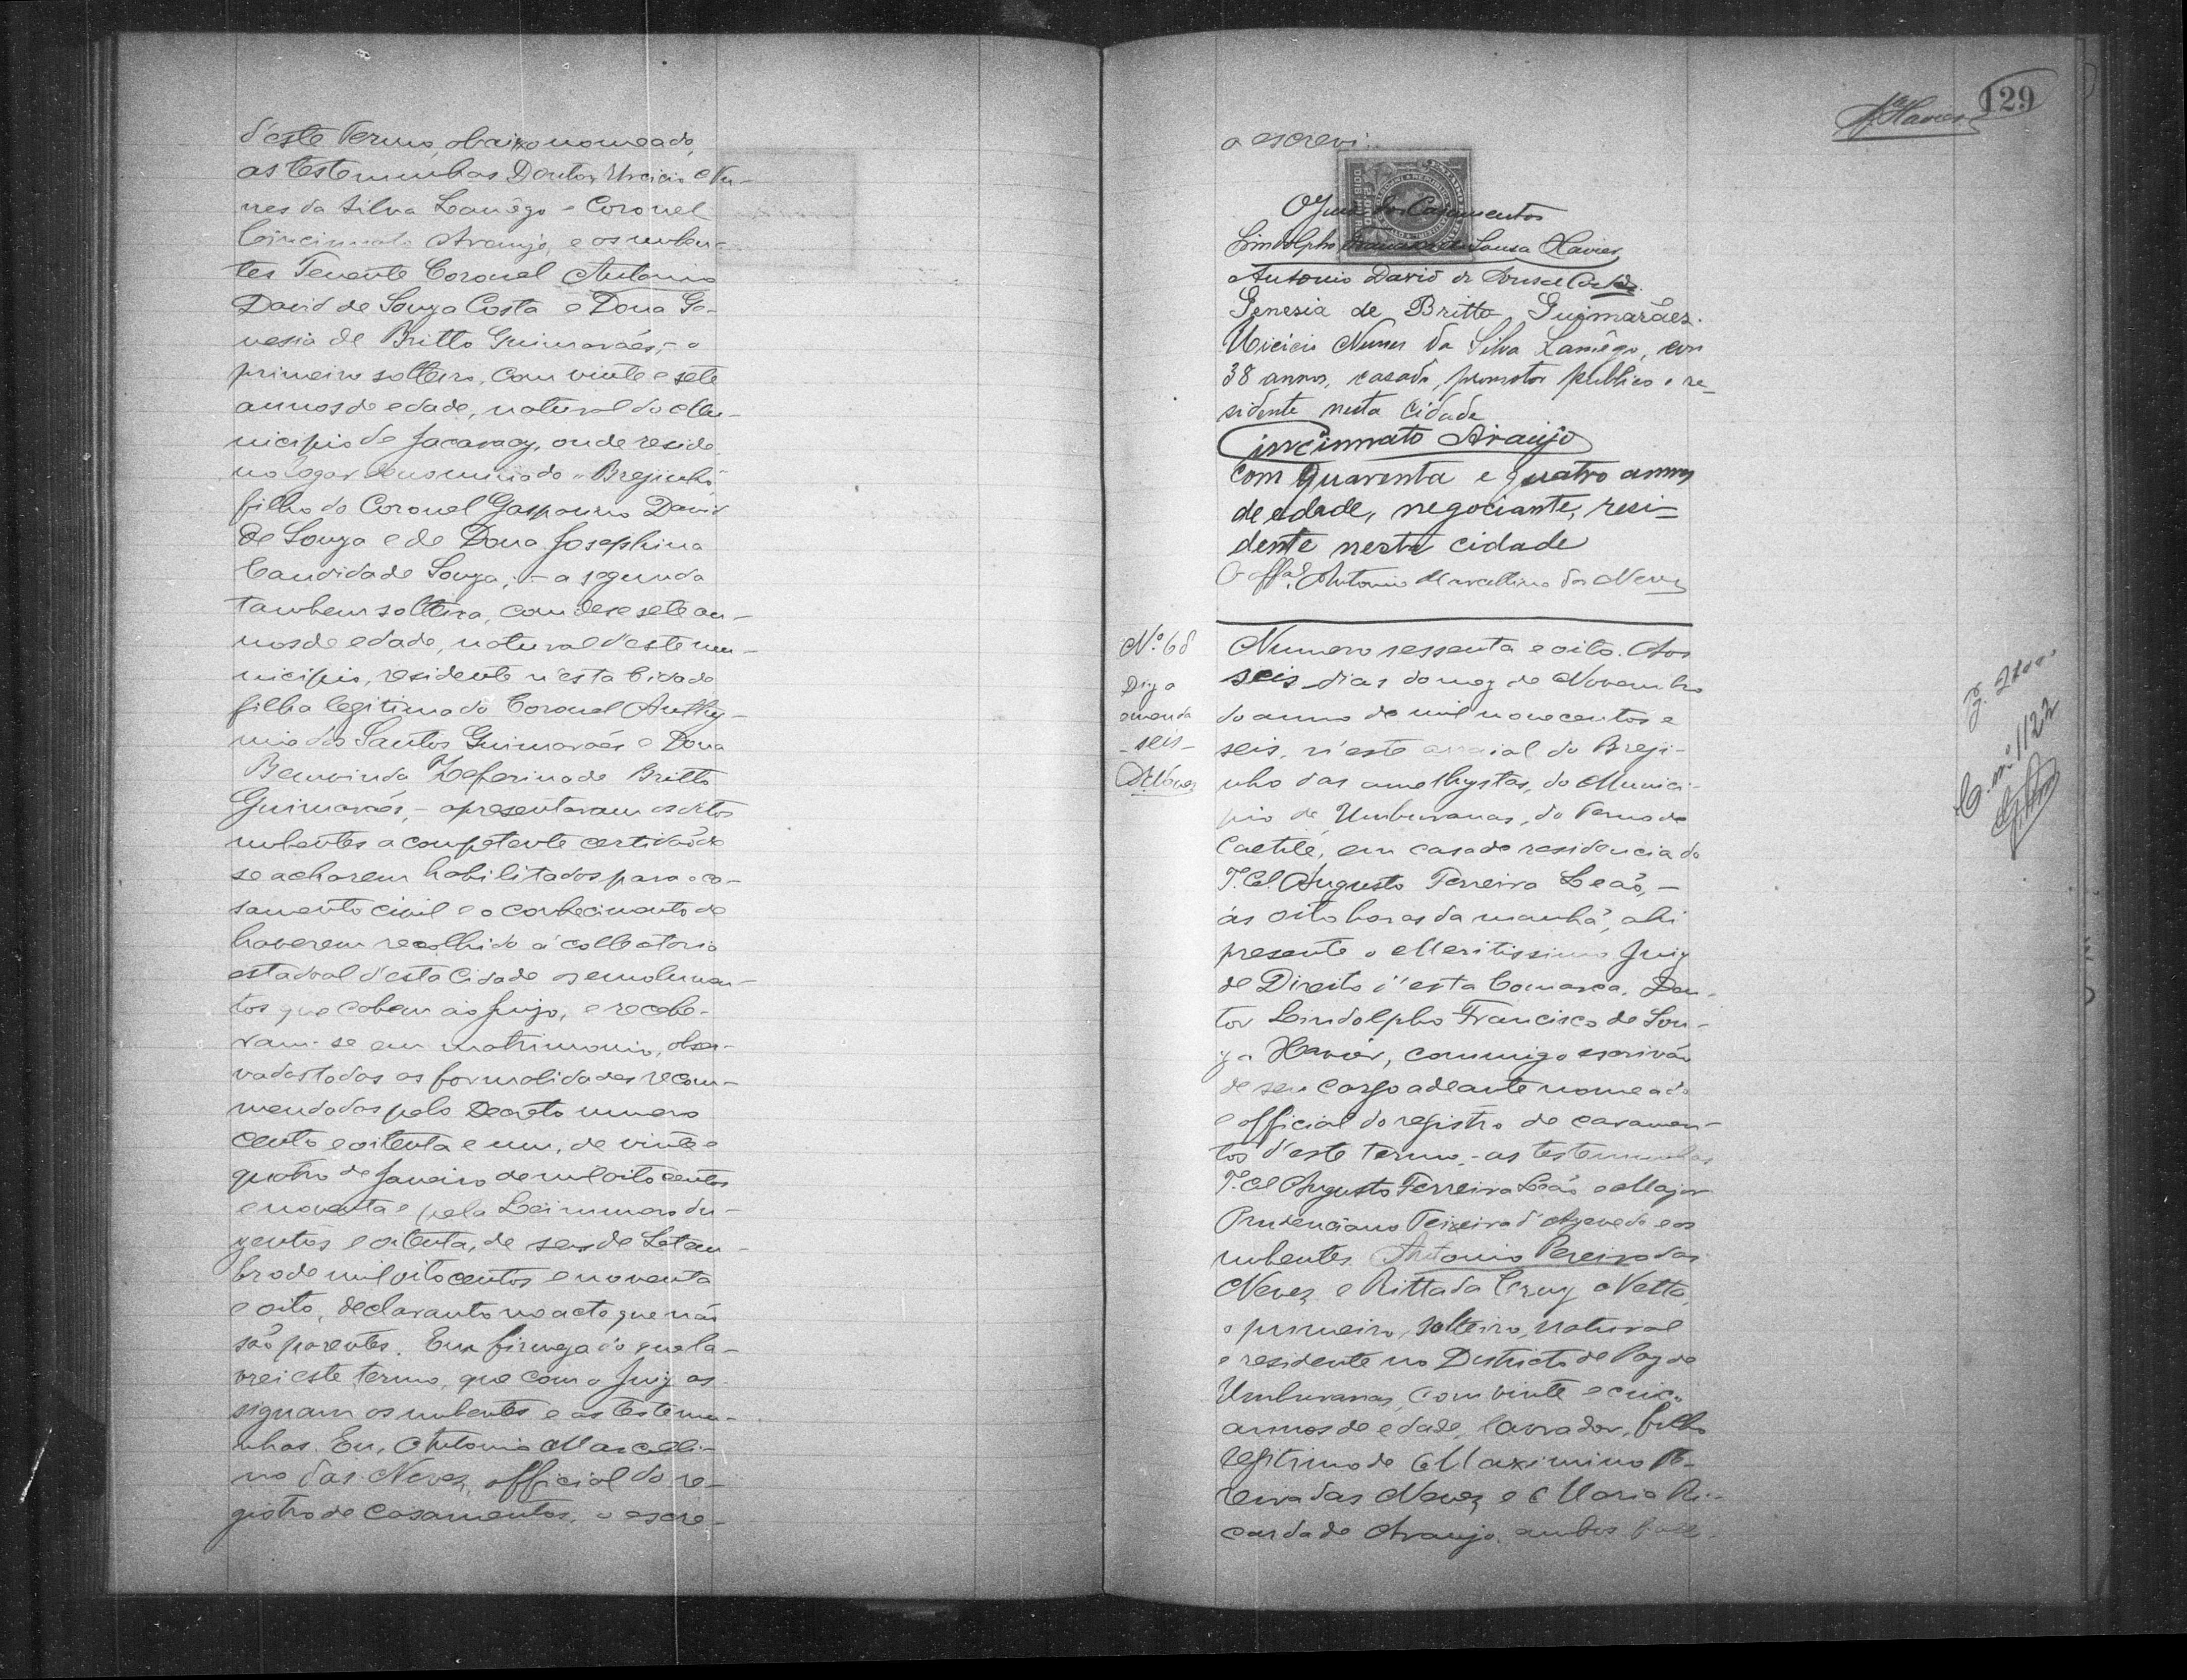 d'este Termo, abaixo nomeado,
as testemunhas Doutor Uricio Nu-
nes da Silva Lamêgo e Coronel
Cincinnato Araujo, e os nuben-
tes Tenente Coronel Antonio
David de Souza Costa e Dona Ge-
nesia de Britto Guimarães, - o
primeiro solteiro, com vinte e sete
annos de edade, natural do Mu-
nicipio de Jacaracy, onde reside
no logar denominado "Brejinho"
filho do Coronel Gasparino David
de Souza e de Dona Josephina
Candida de Souza; - a segunda
tambem solteira, com desesete an-
nos de edade, natural d'este mu-
nicipio, residente n'esta Cidade
filha legitima do Coronel Anthy-
mio dos Santos Guimarães e Dona
Bemvinda Zeferina de Britto
Guimarães, - apresentaram os ditos
nubentes a competente certidão de
se acharem habilitados para o ca-
samento civil e o conhecimento de
haverem recolhido á collectoria
estadoal d'esta Cidade os emolumen-
tos que cabem ao Juizo, e recebe-
ram-se em matrimonio, obser-
vadas todas as formalidades recom-
mendadas pelo Decreto numero
cento e oitenta e um, de vinte e
quatro de Janeiro de mil oito centos
e noventa e pela Lei numero du-
zentos e oitenta, de seis de Setem-
bro de mil oito centos e noventa
e oito, declarando no acto que não
são parentes. Em firmeza do que la-
vrei este termo, que com o Juiz as-
signam os nubentes e as testemu-
nhas. Eu, Antonio Marcelli-
no das Neves, official do re-
gistro de casamentos, o escre-
129
o escrevi.
O Juiz dos Casamentos
Lindolpho Francisco de Sousa Xavier
Antonio David de Sousa Costa.
Genesia de Britto Guimarães.
Uricio Nunes da Silva Lamêgo, com
38 annos, casado, promotor publico e re-
sidente nesta cidade
Cincinnato Araujo
com quarenta e quatro annos
de edade, negociante, resi-
dente nesta cidade
O offal. Antonio Marcellino das Neves
Nº 68
Digo
emenda
- seis -
Numero sessenta e oito. Aos
seis dias do mez de Novembro
do anno de mil nove centos e
seis, n'este arraial do Breji-
nho das amethystas, do Munici-
pio de Umburanas, do Termo de
Caetité, em casa de residencia do
T. Cel. Augusto Ferreira Leão, -
ás oito horas da manhã, ahi
presente o Meritissimo Juiz
de Direito d'esta Comarca, Dou-
tor Lindolpho Francisco de Sou-
za Xavier, commigo escrivão
de seu cargo adeante nomeado
e official do registro de casamen-
tos d'este termo, - as testemunhas
T. Cel Augusto Ferreira Leão e Major
Prudenciano Teixeira d'Azevedo e os
nubentes Antonio Pereira das
Neves e Ritta da Cruz Netta,
o primeiro, solteiro, natural
e residente no Districto de Paz de
Umburanas, com vinte e cinco
annos de edade, lavrador, filho
legitimo de Maximino Pe-
reira das Neves e Maria Ri-
carda de Araujo, ambos falle-
C. nº 1122